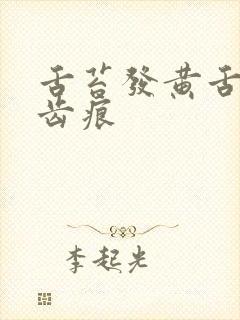 舌苔發黃舌
齿痕
李起光